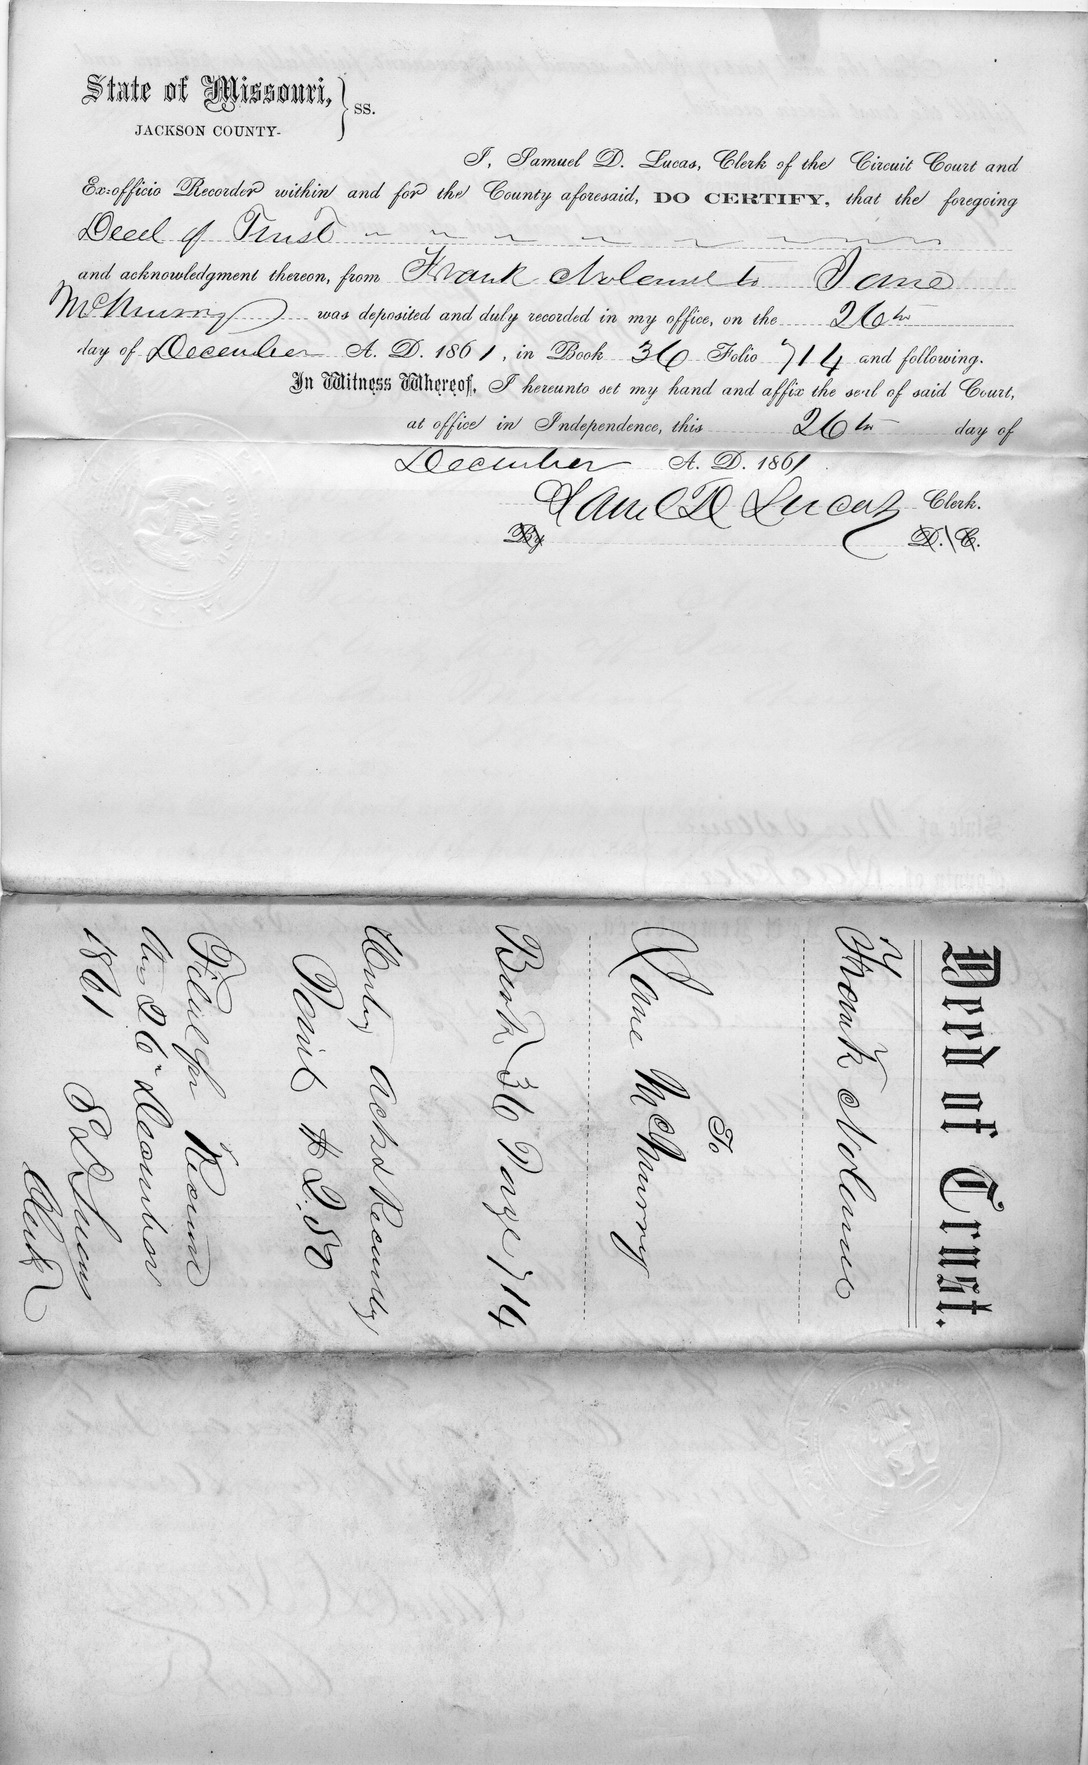 State of Missouri, } SS.
JACKSON COUNTY.
I, Samuel D. Lucas, Clerk of the Circuit Court and
Ex-officio Recorder within and for the County aforesaid, DO CERTIFY, that the foregoing
Deed of Trust
and acknowledgment thereon, from Frank Noland to Jane
McMurry was deposited and duly recorded in my office, on the 26th
day of December A. D. 1861, in Book 36 Folio 714 and following.
In Witness Whereof, I hereunto set my hand and affix the seal of said Court,
at office in Independence, this 26th day of
December A. D. 1861
Saml D Lucas Clerk.
By D. C.
Deed of Trust.
Frank
To
Jane McMurry
Book 36 Page 714
Ack & Recording
$2.50
Filed for Record
26 December
1861 S D Lucas
Clerk